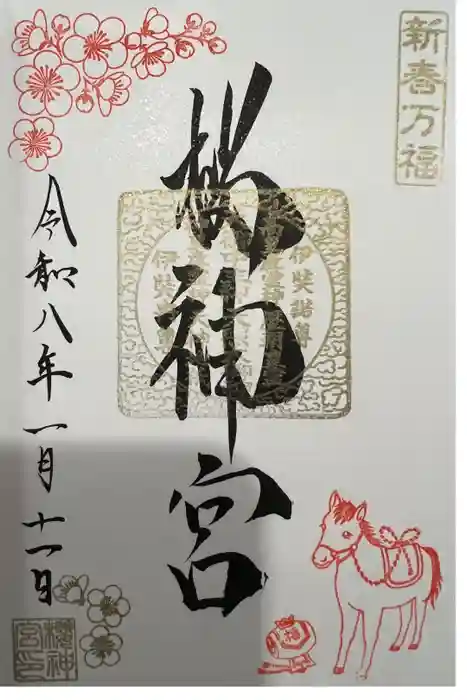 新春万福
櫻神宮
令和八年一月十一日
伊奘諾尊
櫻神宮印
福